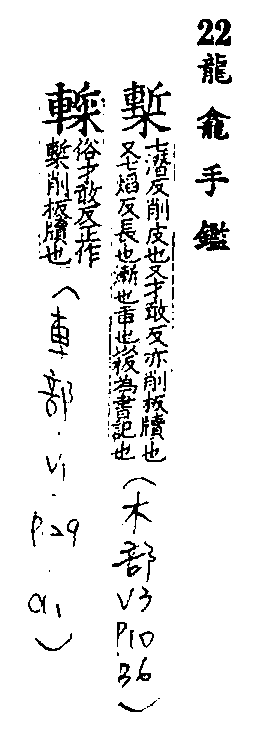 22龍龕手鑑
槧七潛反削皮也又才敢反亦削板牘也
又七焰反長也漸也重也板為書記也
(木部V3P10B6)
𨎷俗才敢反正作
槧削板牘也
(車部.V1.P.29.a1)